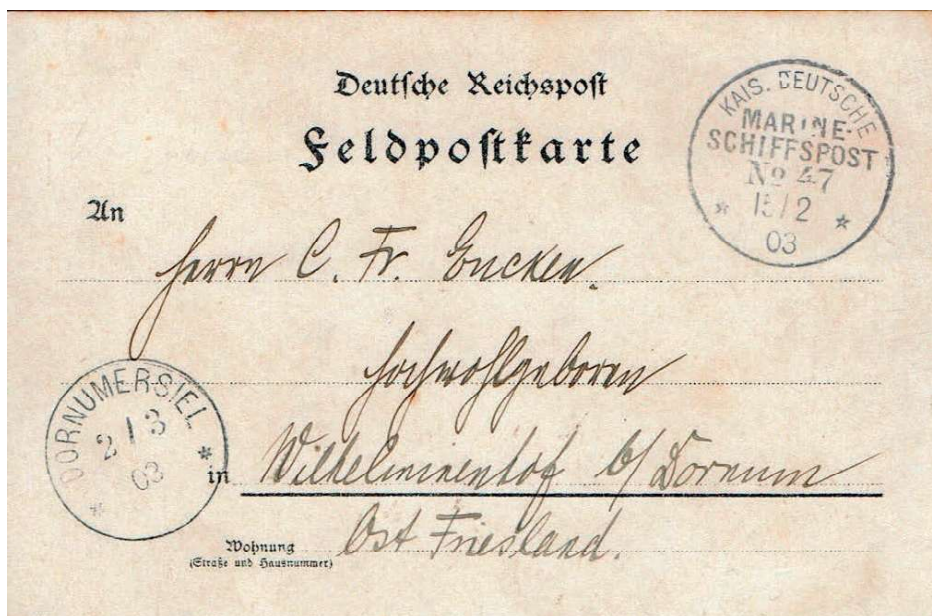 Deutsche Reichspost
Feldpostkarte
KAIS. DEUTSCHE
MARINE-
SCHIFFSPOST
No 47
15/2
03
An
Herrn C. Fr. Eucken.
Hochwohlgeboren
DORNUMERSIEL
2/3
03
in Wilhelminenhof b/ Dornum
Ost Friesland.
Wohnung
(Straße und Hausnummer)